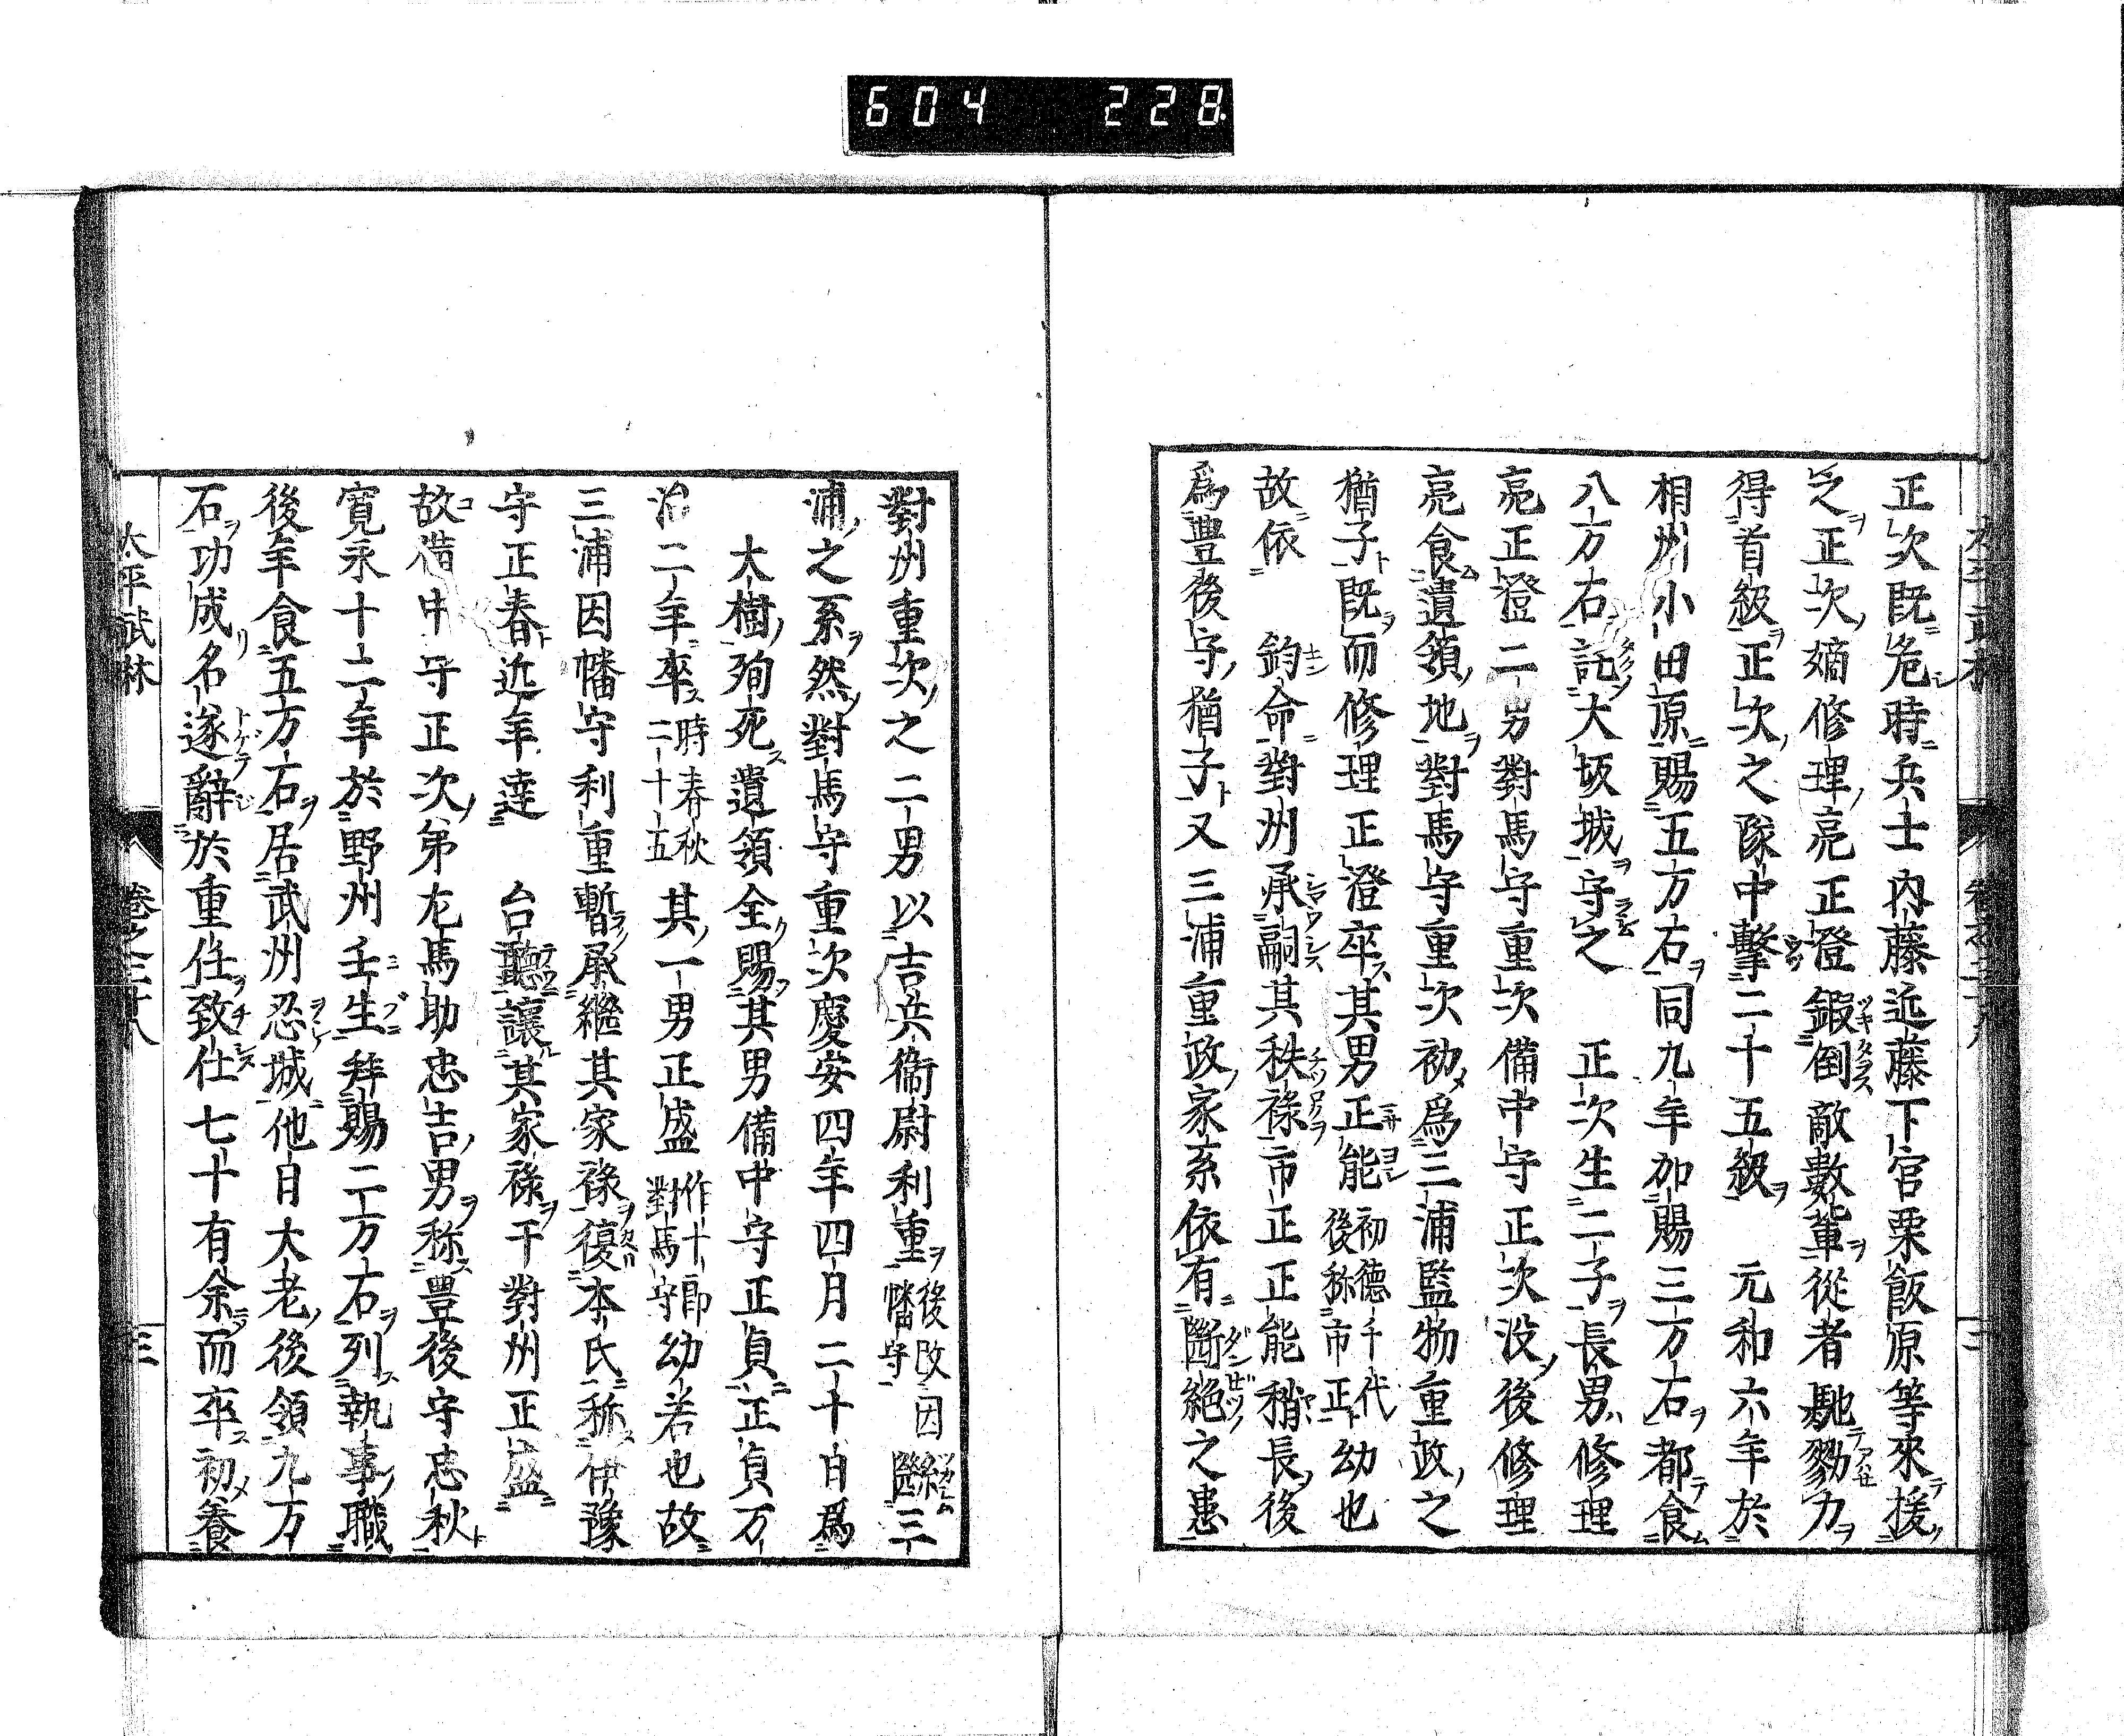 604 228
正次既危時兵士内藤近藤下官栗飯原等來援
之正次嫡修理亮正澄鍛倒敵數輩從者馳勠力
得首級正次之隊中擊二十五級 元和六年於
相州小田原賜五万石同九年加賜三万石都食
八万石託大坂城守之 正次生二子長男修理
亮正澄二男對馬守重次備中守正次没後修理
亮食遺領地對馬守重次初爲三浦監物重政之
猶子既而修理正澄卒其男正能初德千代後称市正幼也
故依 鈞命對州承嗣其秩祿市正正能稍長後
爲豐後守猶子又三浦重政家系依有斷絶之患
對州重次之二男以吉兵衞尉利重後改因幡守繼斷三
浦之系然對馬守重次慶安四年四月二十日爲
大樹殉死遺領全賜其男備中守正貞正貞万
治二年卒時春秋二十五其一男正盛作十郎對馬守幼若也故
三浦因幡守利重暫承繼其家祿復本氏称伊豫
守正春近年達 台聽讓其家祿于對州正盛
故備中守正次弟左馬助忠吉男称豐後守忠秋
寬永十二年於野州壬生拜賜二万石列執事職
後年食五万石居武州忍城他日大老後領九万
石功成名遂辭於重任致仕七十有余而卒初養
太平武林 卷之三十八 三